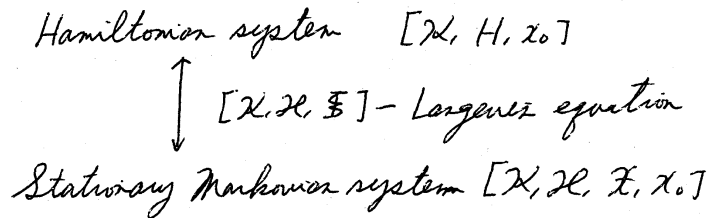 Hamiltonian system [𝒦, H, x₀]
[𝒦, ℋ, ] - Langevin equation
Stationary Markovian system [𝒦, ℋ, , x₀]